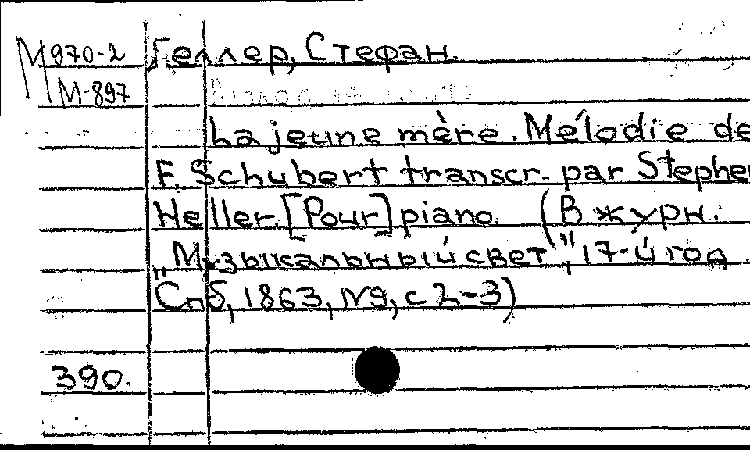 М970-2 Геллер, Стефан.
М-897
La jeune mère. Mélodie de
F. Schubert transcr. par Stephen
Heller. [Pour] piano. (В журн.
„Музыкальный свет", 17-й год
Спб, 1863, №9, с 2-3)
390.